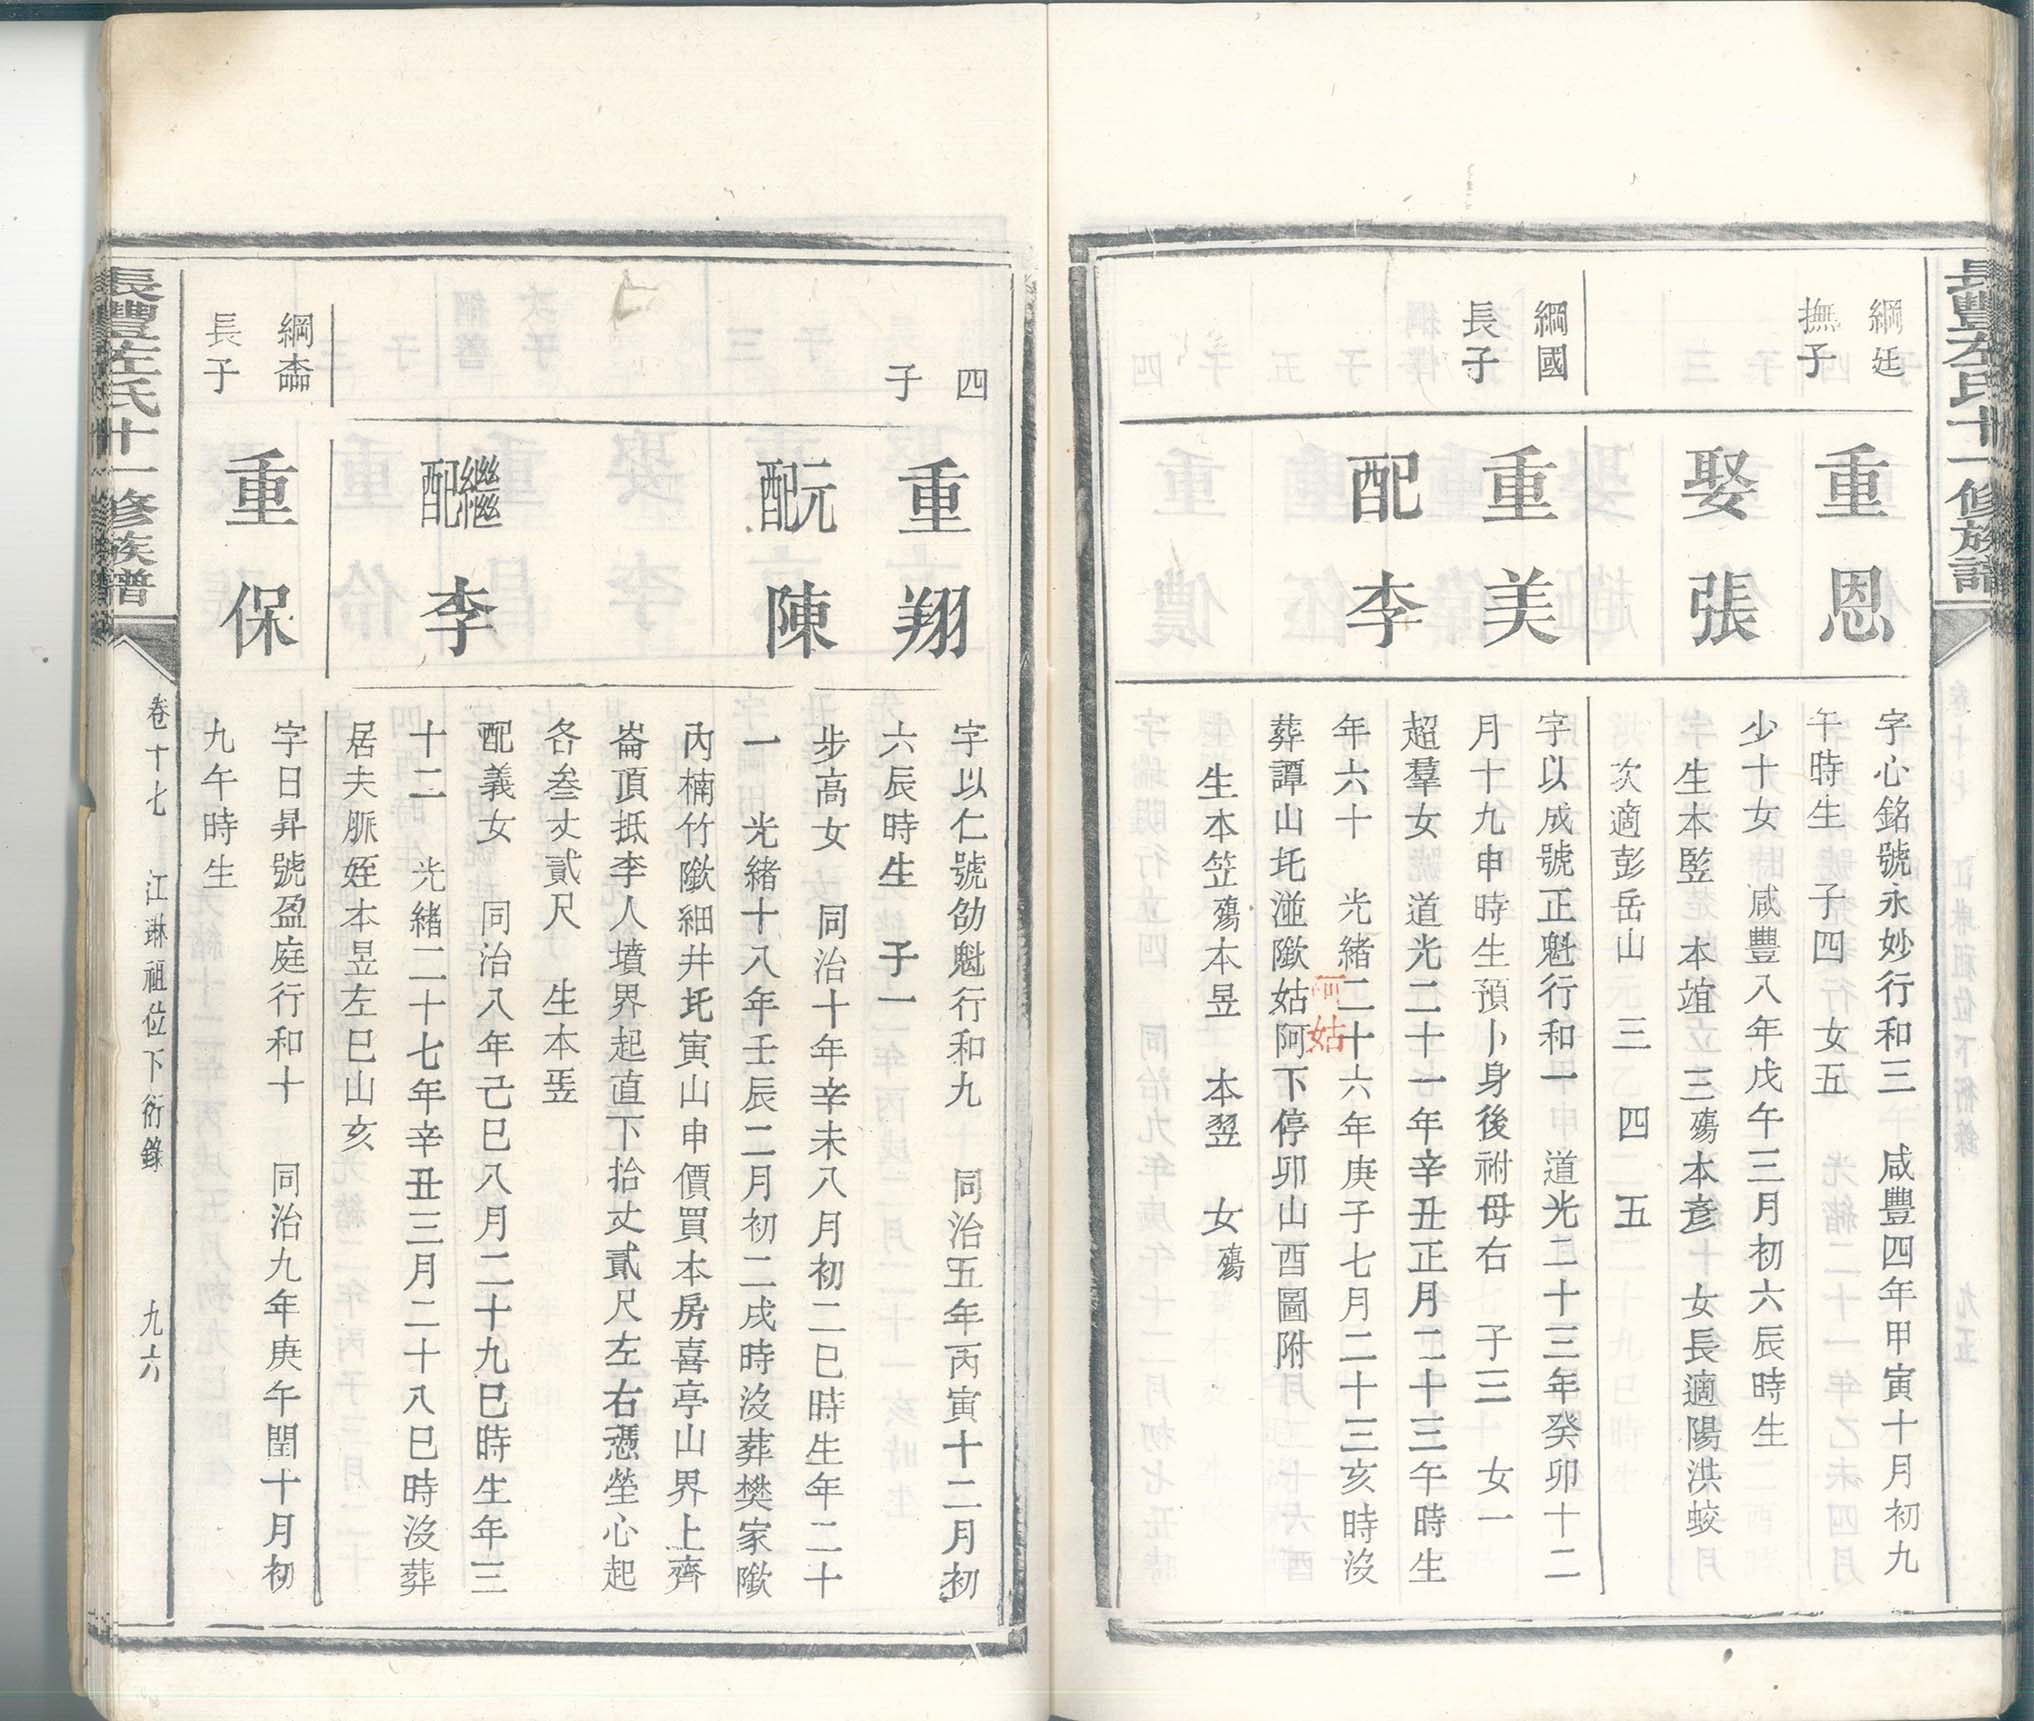 長豐左氏十一修族譜
綱廷
撫子
重恩
字心銘號永妙行和三　咸豐四年甲寅十月初九
午時生　子四　女五
娶張
少十女　咸豐八年戊午三月初六辰時生
生本監　本誼　三殤本彥　女長適陽洪蛟
次適彭岳山　三　四　五
綱國
長子
重美
字以成號正魁行和一　道光二十三年癸卯十二
月十九申時生預卜身後祔母右　子三　女一
配李
超羣女　道光二十一年辛丑正月二十三午時生
年六十　光緒二十六年庚子七月二十三亥時沒
阿姑
葬譚山圫㴰隞姑阿下停卯山酉圖附
生本笠殤本昱　本翌　女殤
四
子
重翔
字以仁號劭魁行和九　同治五年丙寅十二月初
六辰時生　子一
元配陳
步高女　同治十年辛未八月初二巳時生年二十
一　光緒十八年壬辰二月初二戌時沒葬樊家隞
內楠竹隞細井圫寅山申價買本房喜亭山界上齊
崙頂抵李人墳界起直下拾丈貳尺左右憑塋心起
各叁丈貳尺　生本
繼配李
配義女　同治八年己巳八月二十九巳時生年三
十二　光緒二十七年辛丑三月二十八巳時沒葬
居夫脈姪本昱左巳山亥
綱
長子
重保
字日昇號盈庭行和十　同治九年庚午閏十月初
九午時生
長豐左氏十一修族譜
卷十七　江琳祖位下衍錄　九六